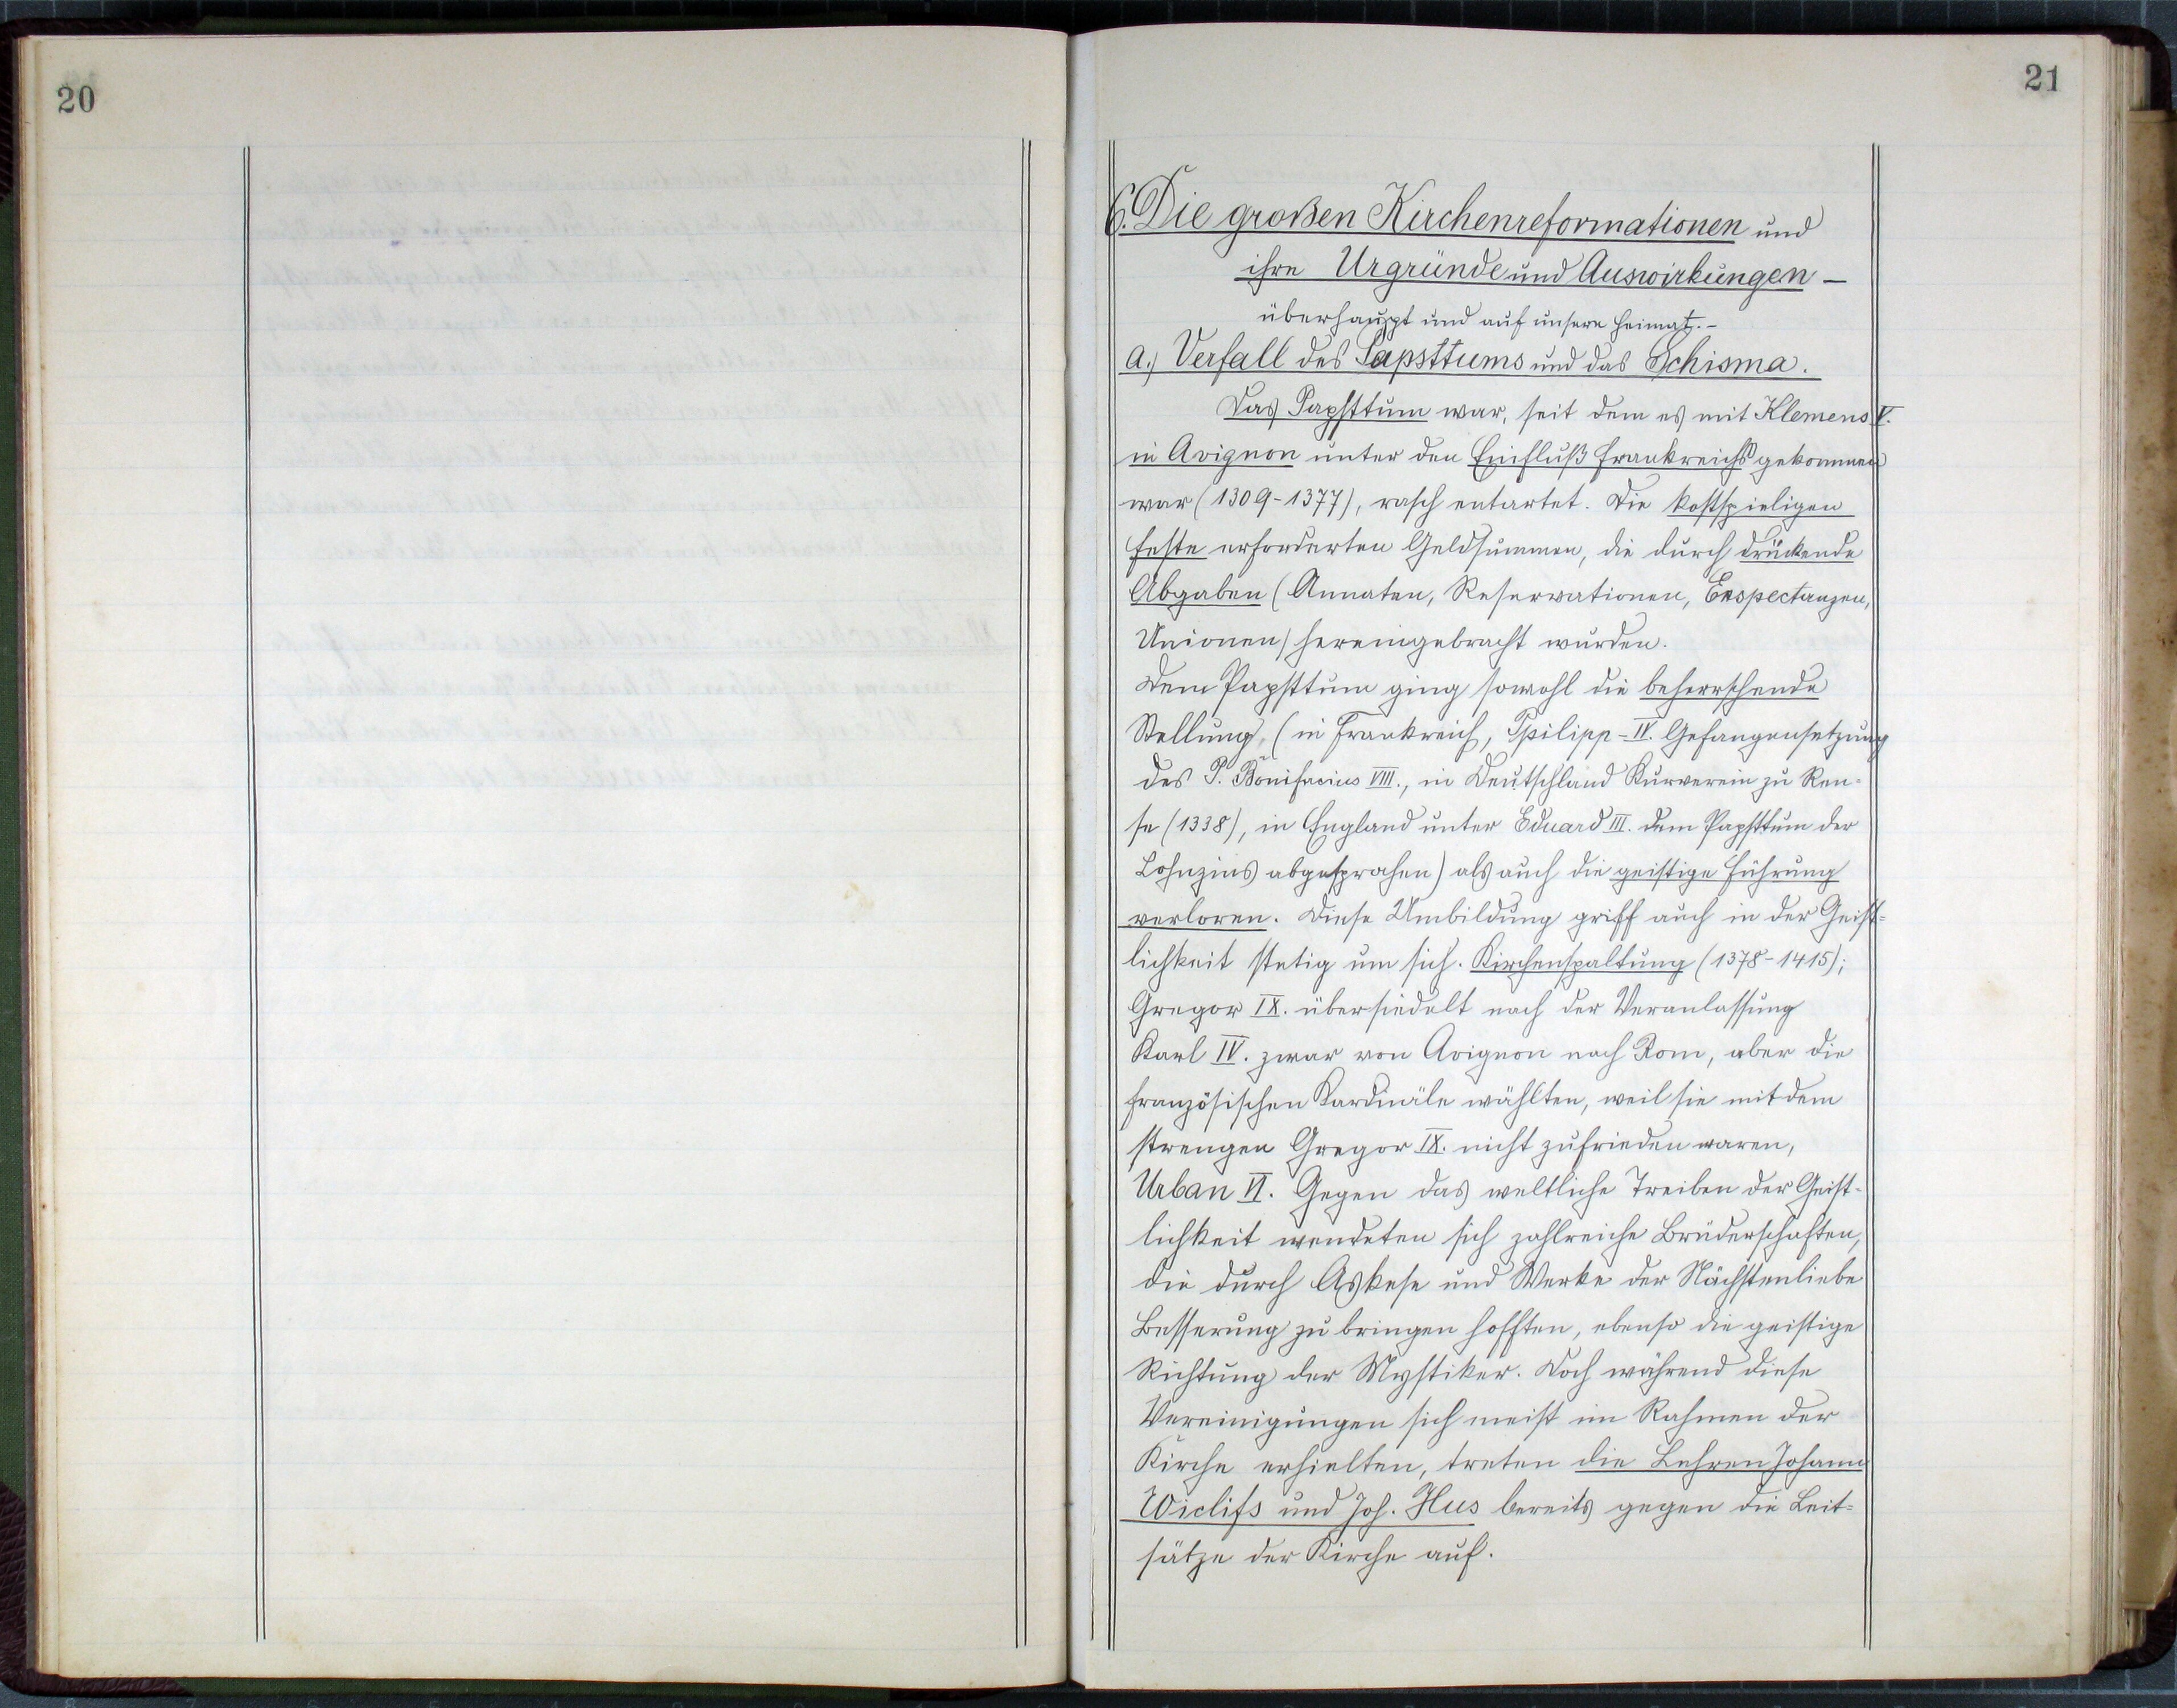 20
21
6. Die großen Kirchenreformationen und
ihre Urgründe und Auswirkungen –
überhaupt und auf unsere Heimat. –
a.) Verfall des Papsttums und das Schisma.
Das Papsttum war, seit dem es mit Klemens V.
in Avignon unter den Einfluß Frankreichs gekommen
war (1309-1377), rasch entartet. Die kostspieligen
Feste erforderten Geldsummen, die durch drückende
Abgaben (Annaten, Reservationen, Exspectanzen,
Unionen) hereingebracht wurden.
Dem Papsttum ging sowohl die beherrschende
Stellung, (in Frankreich, Philipp-IV. Gefangensetzung
des P. Bonifacius VIII., in Deutschland Kurverein zu Ren-
se (1338), in England unter Eduard III. dem Papsttum der
Lehnzins abgesprochen) als auch die geistige Führung
verloren. Diese Umbildung griff auch in der Geist-
lichkeit stetig um sich. Kirchenspaltung (1378-1415);
Gregor IX. übersiedelt nach der Veranlassung
Karl IV. zwar von Avignon nach Rom, aber die
französischen Kardinäle wählten, weil sie mit dem
strengen Gregor IX. nicht zufrieden waren,
Urban VI. Gegen das weltliche Treiben der Geist-
lichkeit wendeten sich zahlreiche Brüderschaften,
die durch Askese und Werke der Nächstenliebe
Besserung zu bringen hofften, ebenso die geistige
Richtung der Mystiker. Doch während diese
Vereinigungen sich meist im Rahmen der
Kirche erhielten, treten die Lehren Johann
Wiclifs und Joh. Hus bereits gegen die Leit-
sätze der Kirche auf.